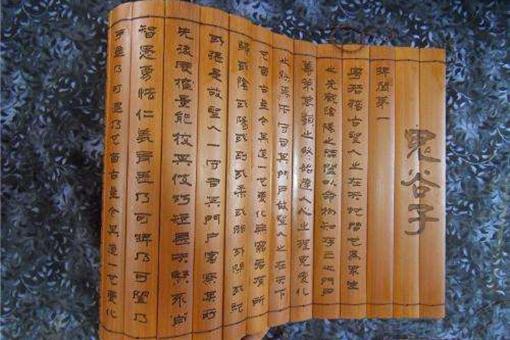 鬼谷子
捭闔第一
粵若稽古聖人之在天地間也為眾生
之先觀陰陽之開闔以命物知存亡之門戶
籌策萬類之終始達人心之理見變化
之朕焉而守司其門戶故聖人之在天下
也自古至今其道一也變化無窮各有所
歸或陰或陽或柔或剛或開或閉或弛
或張是故聖人一守司其門戶審察其所
先後度權量能校其伎巧短長夫賢不肖
智愚勇怯仁義有差乃可捭乃可闔乃
乃可 自古至今其道一也變化